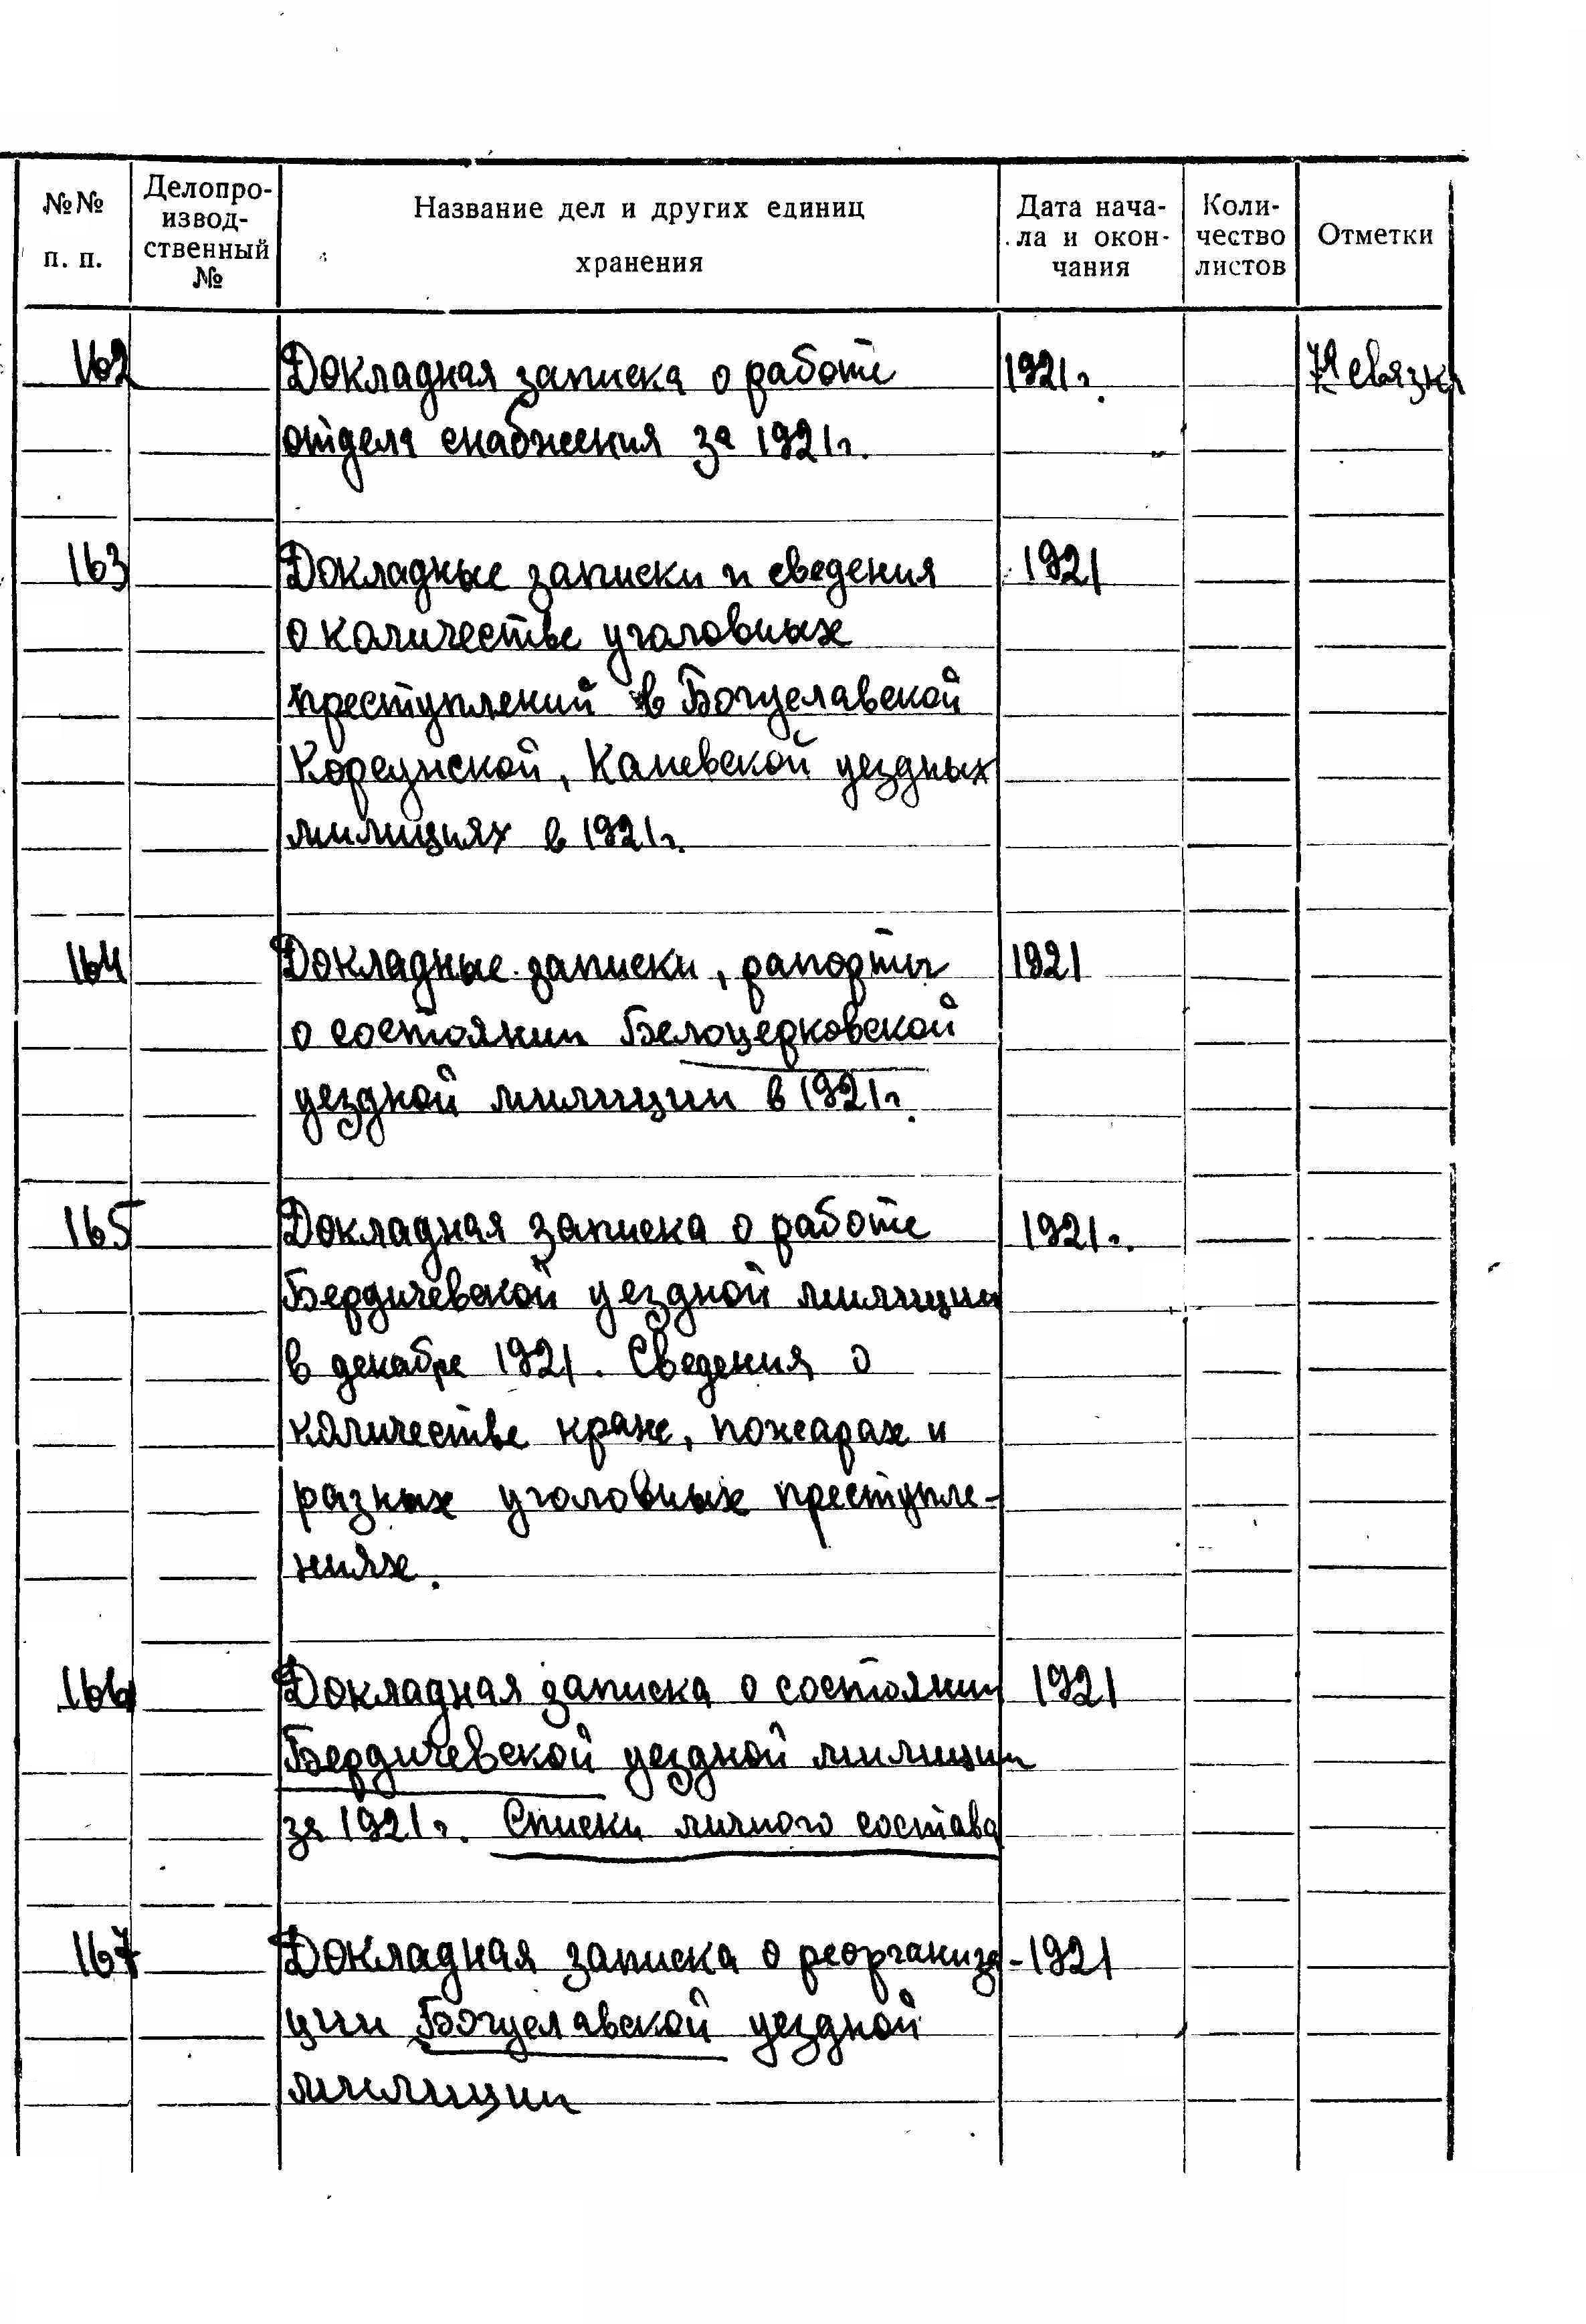 №№ п. п.
Делопро-
извод-
ственный
№
Название дел и других единиц
хранения
Дата нача-
ла и окон-
чания
Коли-
чество
листов
Отметки
162 Докладная записка о работе 1921г. 7я связка
отдела снабжения за 1921г.
163 Докладные записки и сведения 1921
о количестве уголовных
преступлений в Богуславской
Корсунской, Каневской уездных
милициях в 1921г.
164 Докладные записки, рапорты 1921
о состоянии Белоцерковской
уездной милиции в 1921г.
165 Докладная записка о работе 1921г.
Бердичевской уездной милиции
в декабре 1921. Сведения о
количестве краж, пожарах и
разных уголовных преступле-
ниях.
166 Докладная записка о состоянии 1921
Бердичевской уездной милиции
за 1921г. Списки личного состава
167 Докладная записка о реорганиза- 1921
ции Богуславской уездной
милиции